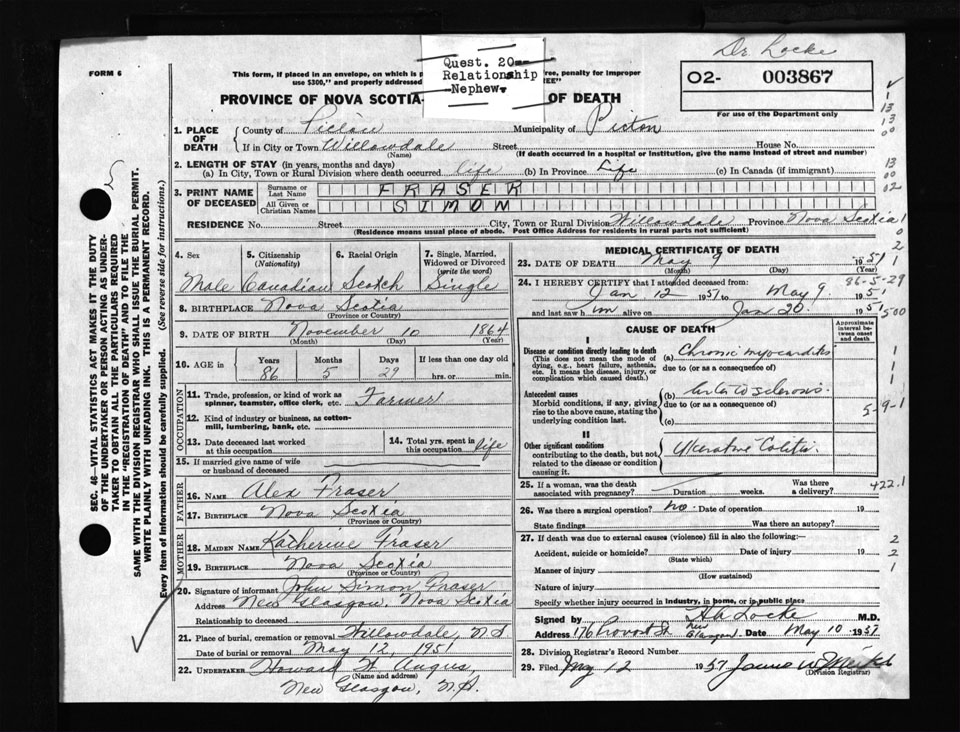 Dr. Locke
FORM 6
This form, if placed in an envelope, on which is p
ree, penalty for improper
use $300," and properly addressed
EE"
Quest. 20--
Relationship
-Nephew.
O2- 003867
For use of the Department only
PROVINCE OF NOVA SCOTIA- OF DEATH
1. PLACE OF DEATH
County of Pictou Municipality of Pictou
If in City or Town Willowdale Street House No.
(Name) (If death occurred in a hospital or institution, give the name instead of street and number)
2. LENGTH OF STAY (in years, months and days)
(a) In City, Town or Rural Division where death occurred life (b) In Province Life (c) In Canada (if immigrant)
3. PRINT NAME OF DECEASED
Surname or Last Name FRASER
All Given or Christian Names SIMON
RESIDENCE No. Street City, Town or Rural Division Willowdale Province Nova Scotia
(Residence means usual place of abode. Post Office Address for residents in rural parts not sufficient)
4. Sex 5. Citizenship (Nationality) 6. Racial Origin 7. Single, Married, Widowed or Divorced (write the word)
Male Canadian Scotch Single
8. BIRTHPLACE Nova Scotia
(Province or Country)
9. DATE OF BIRTH November 10 1864
(Month) (Day) (Year)
10. AGE in Years Months Days If less than one day old
86 5 29 hrs. or min.
OCCUPATION
11. Trade, profession, or kind of work as spinner, teamster, office clerk, etc. Farmer
12. Kind of industry or business, as cotton-mill, lumbering, bank, etc.
13. Date deceased last worked at this occupation 14. Total yrs. spent in this occupation life
15. If married give name of wife or husband of deceased
FATHER
16. NAME Alex Fraser
17. BIRTHPLACE Nova Scotia
(Province or Country)
MOTHER
18. MAIDEN NAME Katherine Fraser
19. BIRTHPLACE Nova Scotia
(Province or Country)
20. Signature of informant John Simon Fraser
Address New Glasgow, Nova Scotia
Relationship to deceased
21. Place of burial, cremation or removal Willowdale, N.S.
Date of burial or removal May 12, 1951
22. UNDERTAKER Howard W. Angus,
(Name and address)
New Glasgow, N.S.
MEDICAL CERTIFICATE OF DEATH
23. DATE OF DEATH May 9 1951
(Month) (Day) (Year)
86-5-29
24. I HEREBY CERTIFY that I attended deceased from:
Jan 12 1951 to May 9 1951
and last saw him alive on Jan 20 1951
500
CAUSE OF DEATH
Approximate interval between onset and death
I
Disease or condition directly leading to death (a) Chronic myocarditis
(This does not mean the mode of dying, e.g., heart failure, asthenia, etc. It means the disease, injury, or complication which caused death.
due to (or as a consequence of)
Antecedent causes (b) Arterio sclerosis.
Morbid conditions, if any, giving rise to the above cause, stating the underlying condition last.
due to (or as a consequence of)
(c)
5-9-1
II
Other significant conditions Ulcerative Colitis.
contributing to the death, but not related to the disease or condition causing it.
25. If a woman, was the death associated with pregnancy? Duration weeks. Was there a delivery?
422.1
26. Was there a surgical operation? no Date of operation 19
State findings Was there an autopsy?
27. If death was due to external causes (violence) fill in also the following:—
Accident, suicide or homicide? Date of injury 19
(State which)
Manner of injury
(How sustained)
Nature of injury
Specify whether injury occurred in industry, in home, or in public place
Signed by H A Locke M.D.
Address 176 Provost St New Glasgow. Date May 10 1951
28. Division Registrar's Record Number
29. Filed May 12 1951
(Division Registrar)
SEC. 46—VITAL STATISTICS ACT MAKES IT THE DUTY
OF THE UNDERTAKER OR PERSON ACTING AS UNDER-
TAKER TO OBTAIN ALL THE PARTICULARS REQUIRED
IN THE "REGISTRATION OF DEATH" AND TO FILE THE
SAME WITH THE DIVISION REGISTRAR WHO SHALL ISSUE THE BURIAL PERMIT.
WRITE PLAINLY WITH UNFADING INK. THIS IS A PERMANENT RECORD.
Every item of information should be carefully supplied. (See reverse side for instructions.)